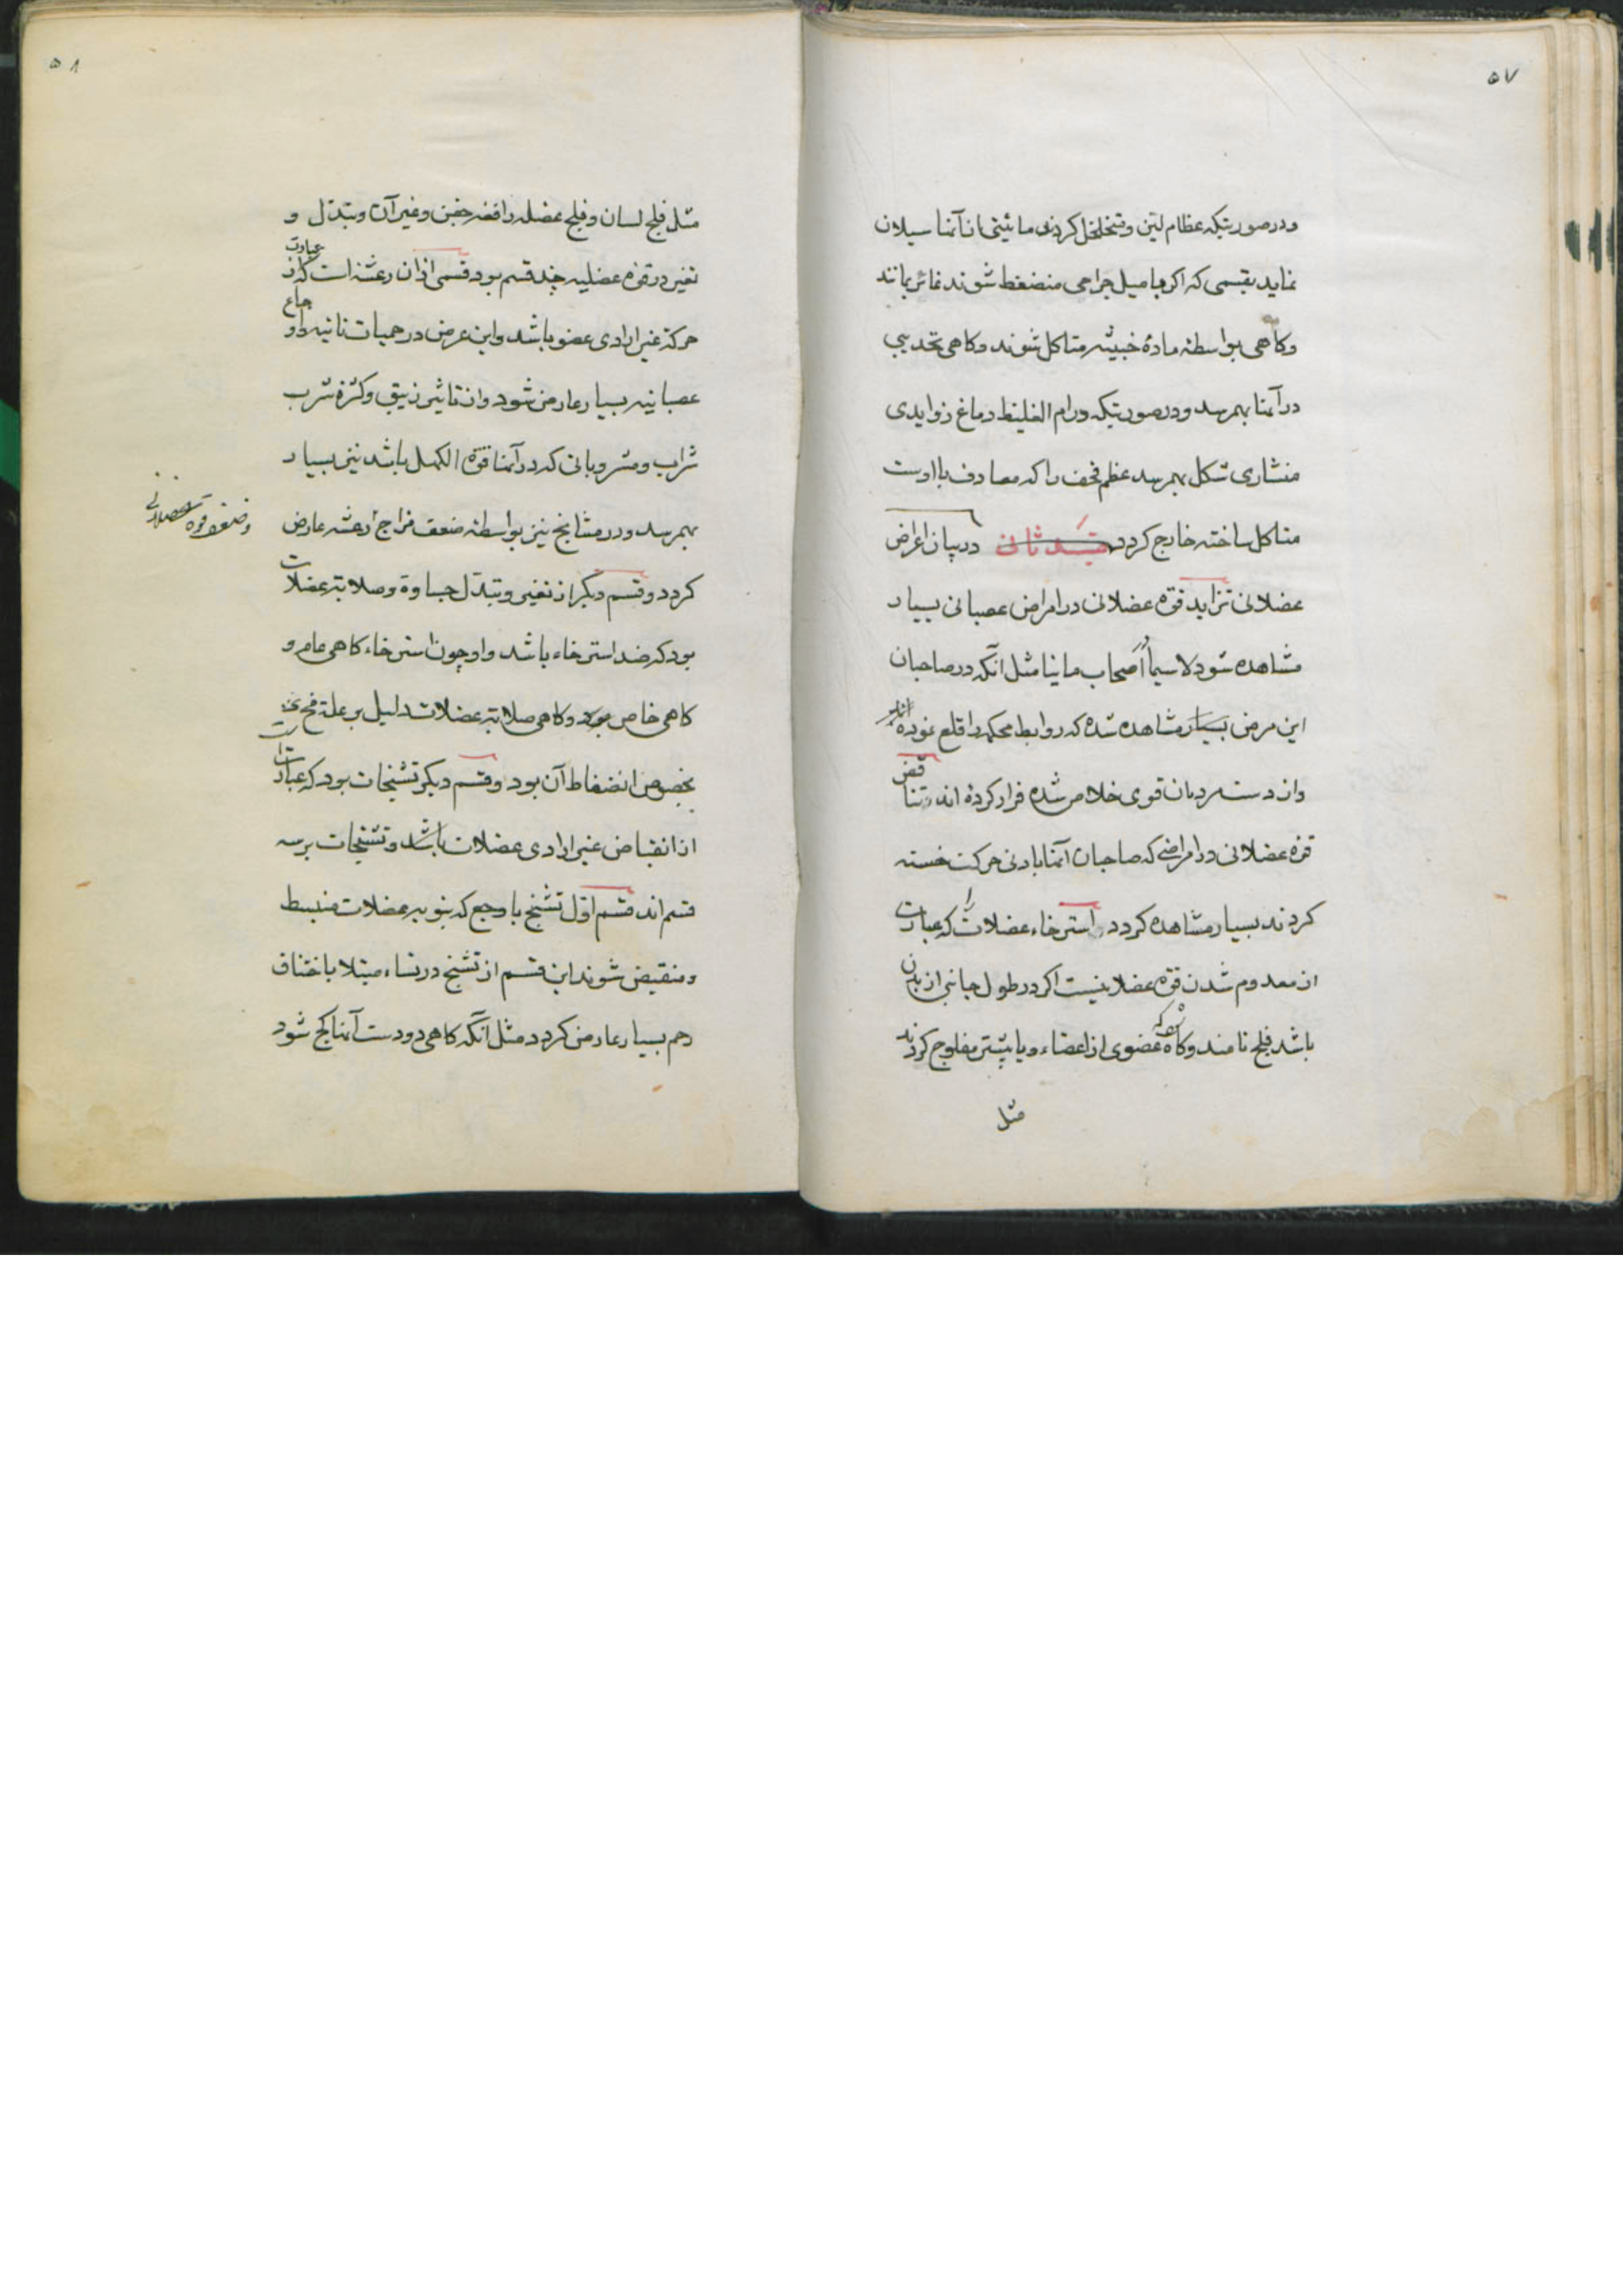 ۵۷
ودرصورتیکه عظام لین ومتخلخل کردند مائیتی از آنها سیلان
نماید بقسمی که اکر با میل جراحی منضغط شوند نماثر بمانند
وکاهی بواسطه ماده خبیثه متاکل شوند وکاهی تحدیبی
در آنها بهمرسد ودرصورتیکه ورام الغلیظ دماغ زوایدی
منشاری شکل بهمرسد عظم قحف را که مصادف با اوست
متاکل ساخته خارج کردد ثانی در بیان اعراض
عضلانی تزاید قوه عضلانی در امراض عصبانی بسیار
مشاهده شود لاسیما در اصحاب مانیا مثل آنکه در صاحبان
این مرض بسیار مشاهده شده که روابط محکمه را قلع نموده اند
واز دست مردمان قوی خلاص شده فرار کرده اند تناقض
قوه عضلانی در امراضی که صاحبان آنها بادنی حرکت خسته
کردند بسیار مشاهده کردد استرخاء عضلات را که عبارت
از معدوم شدن قوه عضلانیست اکر در طول جانبی از بدن
باشد فلج نامند وکاه که عضوی از اعضاء ویا بیشتر مفلوج کردند
مثل
۵۸
مثل فلج لسان وفلج عضله رافعه جفن وغیر آن وتبدل و
تغیر در قوه عضلیه چند قسم بود قسمی ازان رعشه است که عبارت از
حرکة غیر ارادی عضو باشد واین عرض در حمیات نائبه و اوجاع
عصبانیه بسیار عارض شود واز تاثیر زیبق وکثرة شرب
شراب ومشروباتی که در آنها قوة الکحل باشد نیز بسیار
بهمرسد ودر مشایخ نیز بواسطه ضعف مزاج رعشه عارض
وضعف قوه عضلانی
کردد وقسم دیکر از تغییر وتبدل جساوة وصلابة عضلات
بود که ضد استرخاء باشد واو چون استرخاء کاهی عام و
کاهی خاص بود وکاهی صلابة عضلات دلیل بر علة مخ
بخصوص انضغاط آن بود وقسم دیکر تشنجات بود که عبارت
از انقباض غیر ارادی عضلات باشد وتشنجات بر سه
قسم اند قسم اول تشنج با وجع که بنوبه عضلات منبسط
ومنقبض شوند این قسم از تشنج در نساء مبتلا باختناق
رحم بسیار عارض کردد مثل آنکه کاهی دو دست آنها کج شود